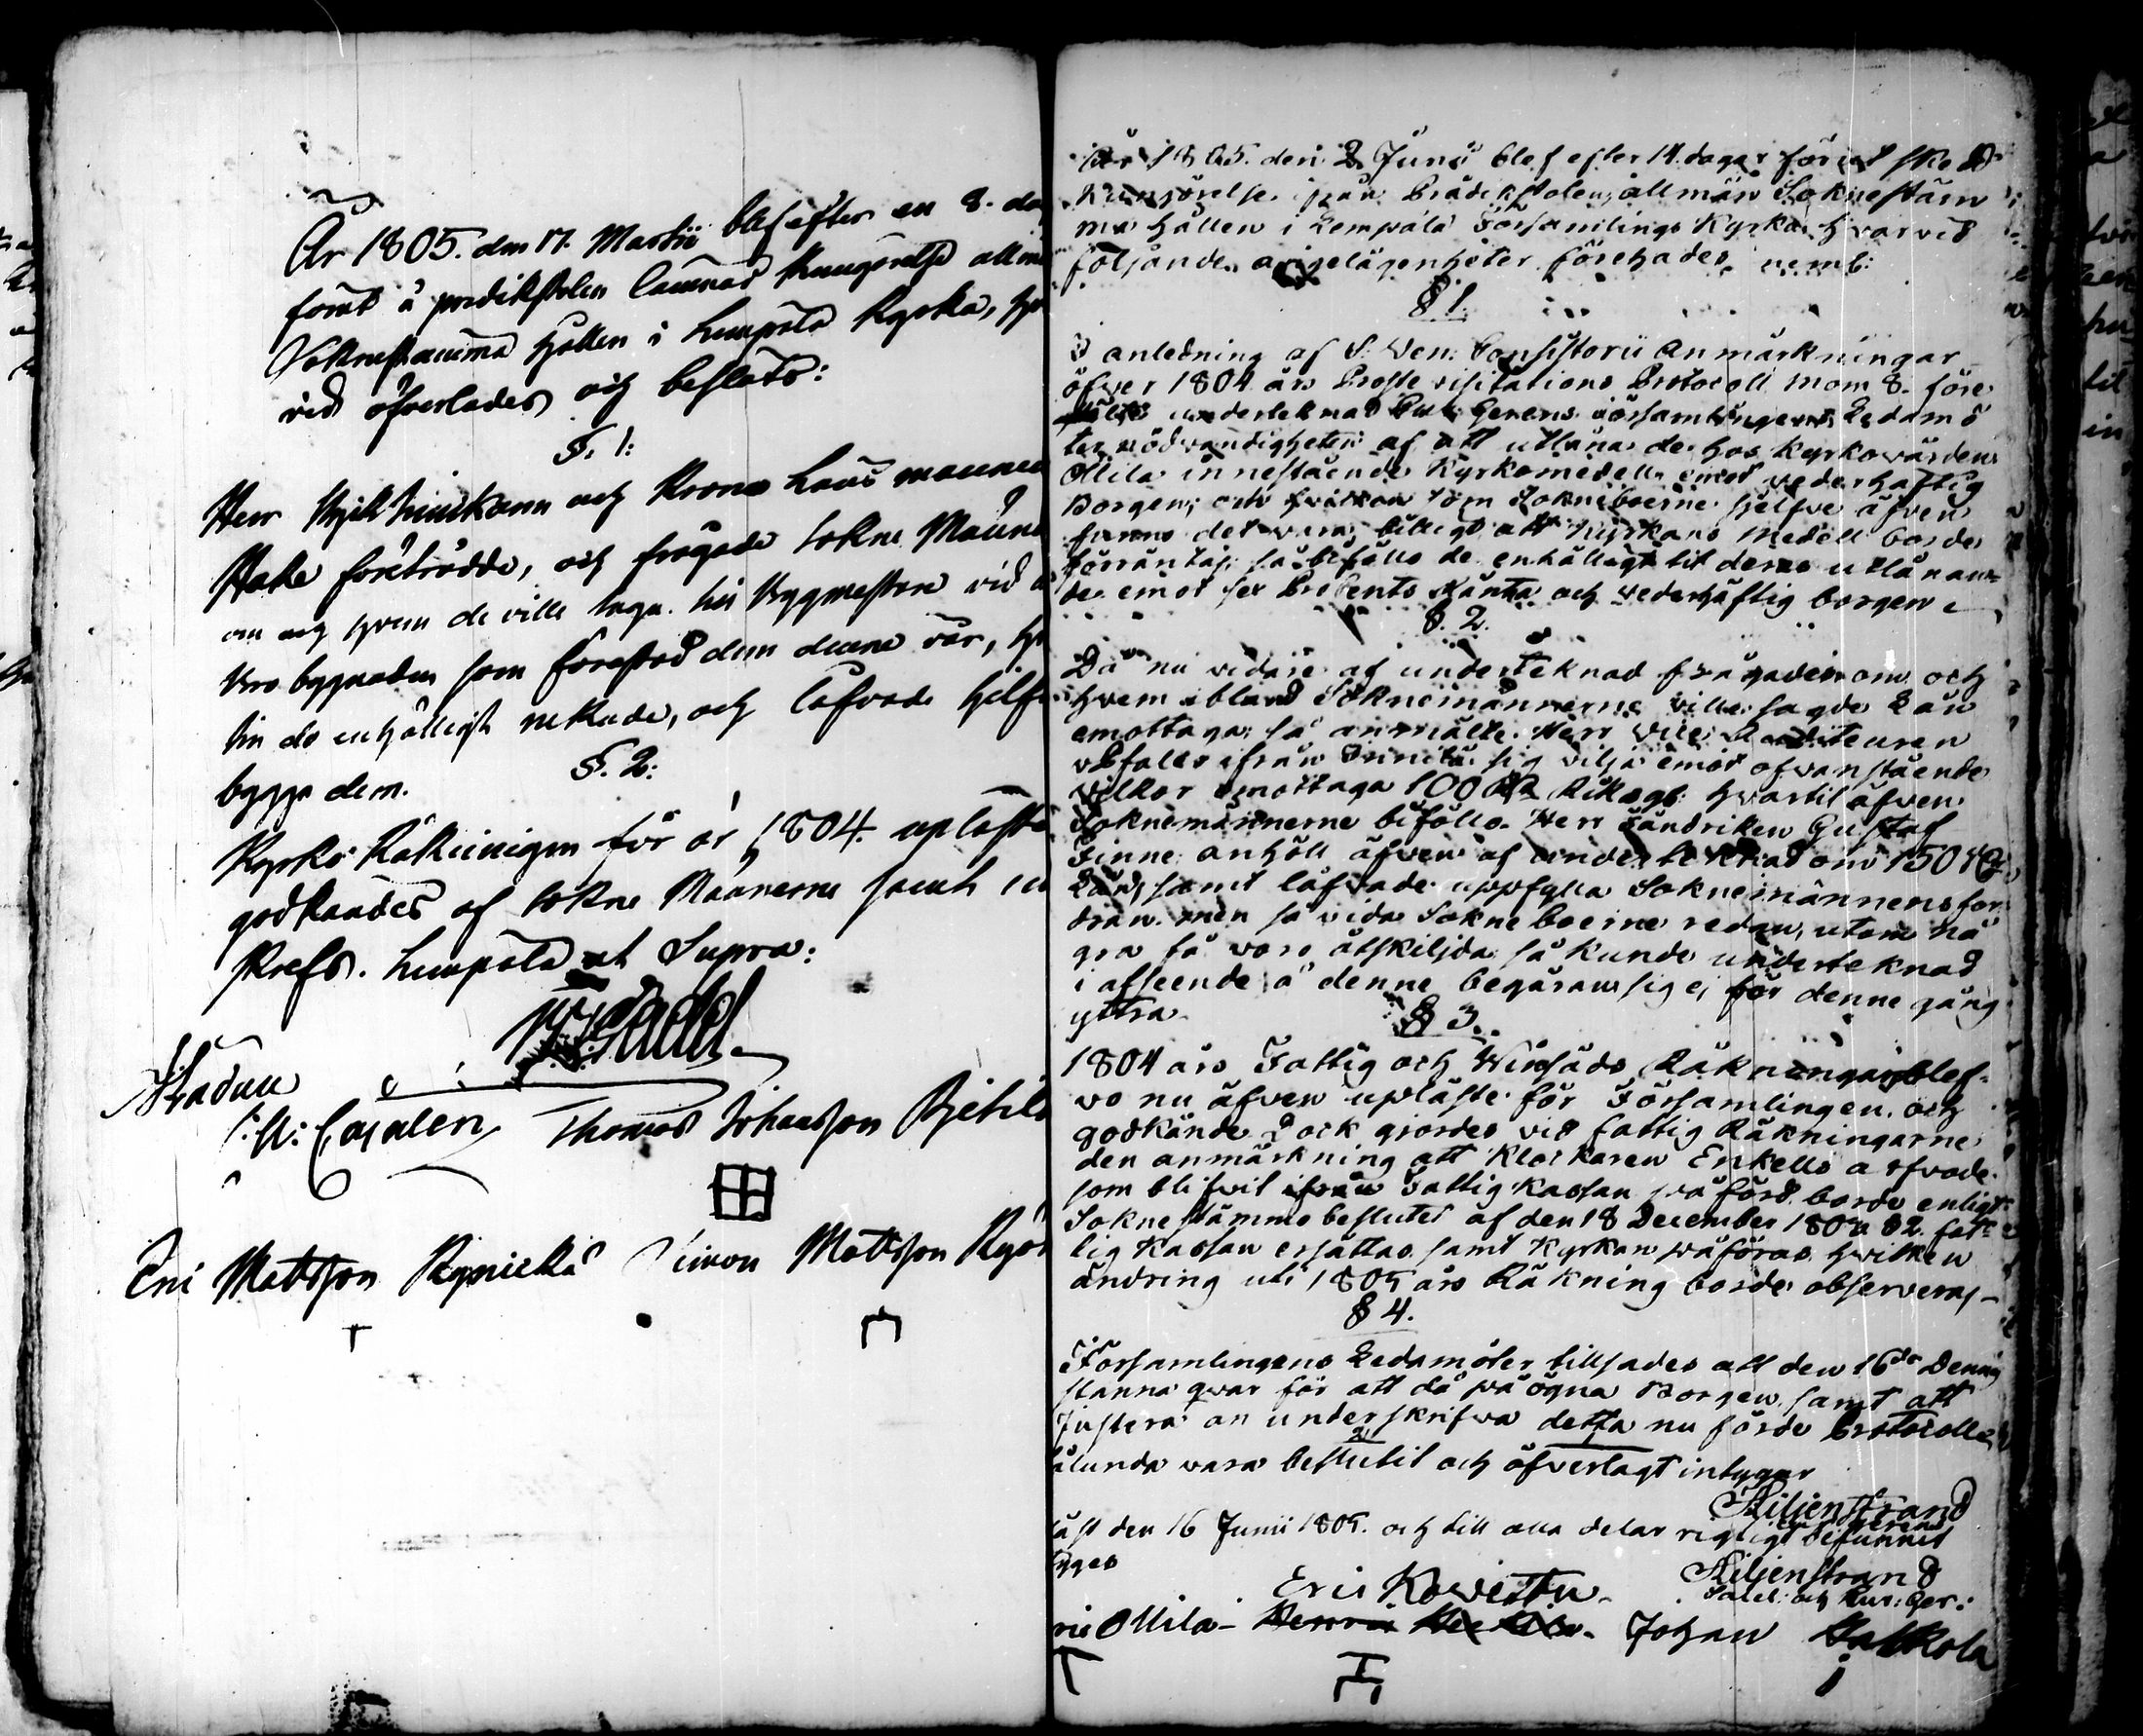 År 1805. den 17. Martii blef efter en 8. da
förut å predikstolen lämnad Kungörelse allmä
Soknestämma hållen i Lempälä Kyrka, hvar
vid öfverlades och beslöts:
§. 1:
Herr Krono Läns mannen
Stake förträdde, och frågade Sokne Männe
om och hvem de ville taga till Byggmästare vid
Bro byggnaden som förestod dem denne vår, hvar
till de enhälligt nekade, och låfvade sjelfve
bygga dem.
§. 2:
Kyrko Räkningen för år 1804. uplästes
godkändes af Sokne Männerne samt
skrefs. Lempälä ut Supra:
Thomas Johansson
Eric Mattsson Simon Mattsson
År 1805. den 2 Junii blef efter 14. dagar förut skedd
Kungörelse ifrån Prädikstolen, allmän Soknestäm
ma hållen i Lempälä Församlings Kyrka, hvarvid
följande angelägenheter förehades, neml:
§ 1.
I anledning af V. Ven: Consistorii Anmärkningar
öfver 1804 års Probste visitations Protocoll mom 8. före
undertecknad Församlingens Ledamö
ter nödvändigheten af att utlåna de hos Kyrkovärden
Ollila innestående Kyrkomedell emot vederhäftig
Borgen; och som Sokneboerne sjelfve äfven
funno det vara billigt att Kyrkans Medell borde
förräntas; så biföllo de enhälligt till deras utlånan
de emot sex Procents Ränta och vederhäftig borgen
§. 2.
Då nu vidare af undertecknad frågades om och
hvem ibland Soknemännerne ville sagde Lån
emottaga, så anmälte Herr Vice Auditeuren
ifrån sig vilja emot ofvanstående
vilkor emottaga 100 Rd Riksgb: hvartil äfven
Soknemännerne biföllo. Herr Fändriken Gustaf
Finne anhöll äfven af undertecknad om 150 Rd
Lån, samt låfvade uppfylla Soknemännens for
dran. men så vida Sokneboerne redan, utom nå
gra få voro åtskiljda så kunde undertecknad
i afseende å denne begäran sig ej för denne gång
yttra.
§ 3.
1804 års Fattig och Räkningar blef
vo nu äfven upläste för Församlingen och
godkände. Dock gjordes vid fattig Räkningarne
den anmärkning att Klockaren Enkells arfvode
som blifvit ifrån Fattig kassan påförd borde enligt
Soknestämmo beslutet af den 18 December 180 § 2. fat
tig kassan ersättas samt Kyrkan påföras hvilken
ändring uti 1805 års Räkning borde observeras
§ 4.
Församlingens Ledamöter tillsades att den 16de Dennes
stanna qvar för att då på ögna Borgen samt att
Justera an underskrifva detta nu förde Protocolle
ålunda vara beslutit och öfverlagt intygar
Kiljenstrand
äst den 16 Junii 1805. och till alla delar rigtigt befunnit
tyges
Kiljenstrand
Eric Kovestu
ric Ollila Johan